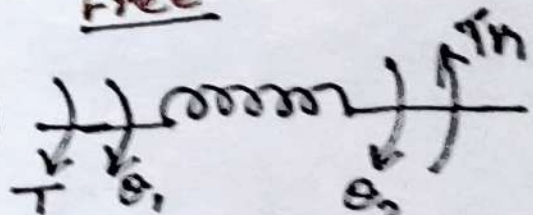 Free
Tm
T θ₁ θ₂